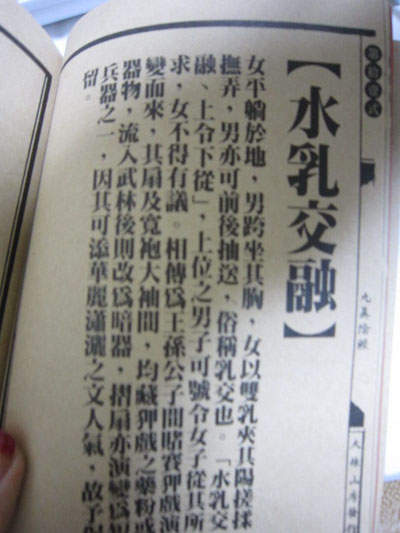 【水乳交融】
女平躺於地，男跨坐其胸，女以雙乳夾其陽搓揉
撫弄，男亦可前後抽送，俗稱乳交也。「水乳交
融、上令下從」，上位之男子可號令女子從其所
求，女不得有議。相傳爲王孫公子間賭賽狎戲演
變而來，其扇及寬袍大袖間，均藏狎戲之藥粉或
器物，流入武林後則改爲暗器，摺扇亦演變爲
兵器之一，因其可添華麗瀟灑之文人氣，故予
留。